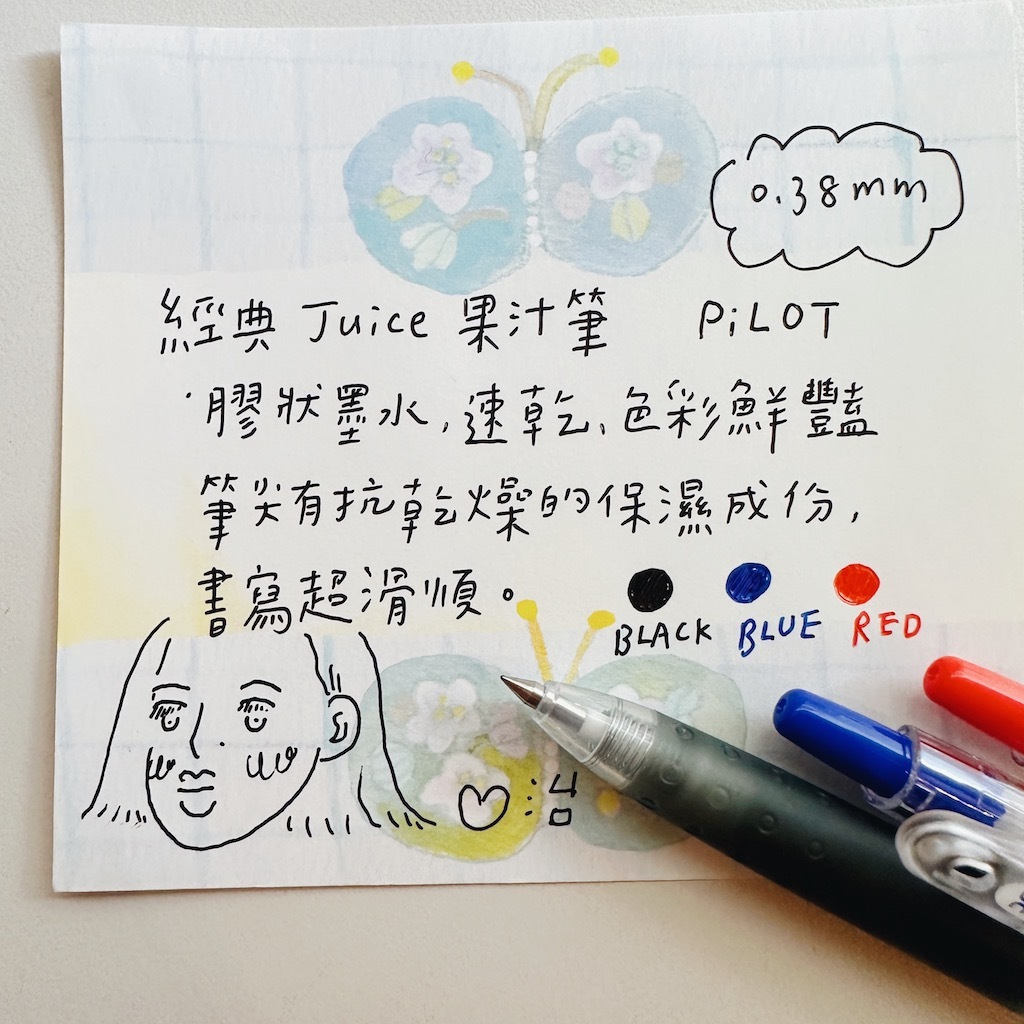 0.38mm
經典 Juice 果汁筆 PiLOT
·膠狀墨水,速乾、色彩鮮豔
筆尖有抗乾燥的保濕成份,
書寫超滑順。
BLACK BLUE RED
治